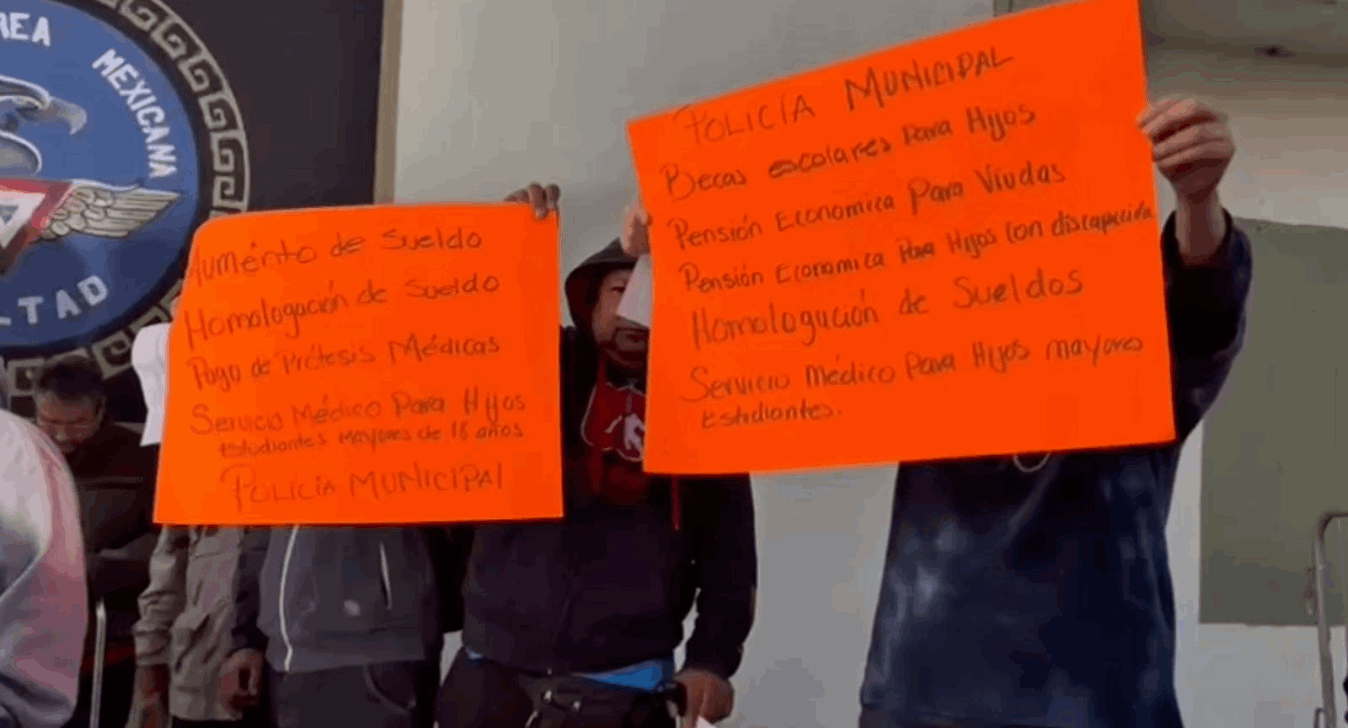 REA
MEXICANA
LTAD
Aumento de Sueldo
Homologación de Sueldo
Pago de Prótesis Médicas
Servicio Médico Para Hijos
Estudiantes Mayores de 18 años
POLICÍA MUNICIPAL
POLICÍA MUNICIPAL
Becas escolares Para Hijos
Pensión Economica Para Viudas
Pensión Economica Para Hijos con discapacida
Homologación de Sueldos
Servicio Médico Para Hijos mayores
Estudiantes.